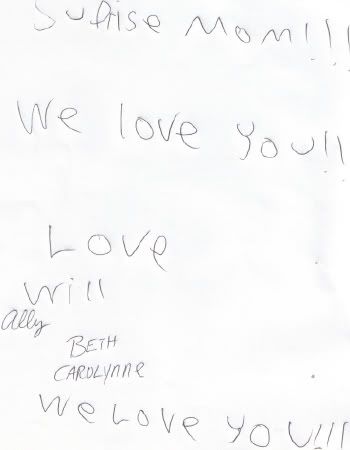 Suprise Mom!!!
We love you!!
Love
Will
Ally
BETH
CAROLYNNE
We Love YOU!!!